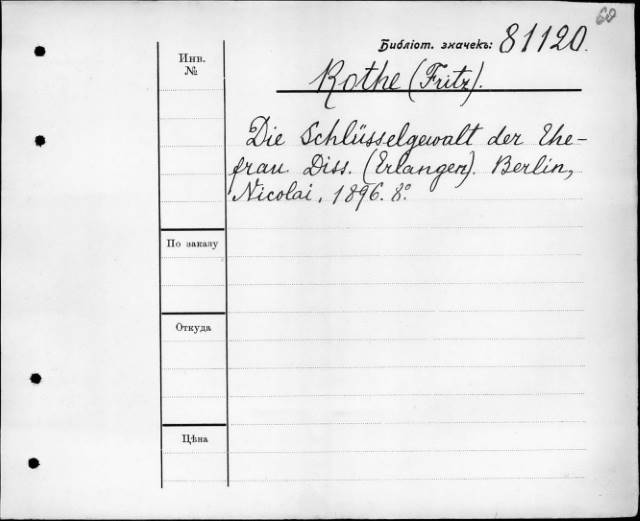 60
Библіот. значекъ: 81120.
Rothe (Fritz).
Инв.
№
Die Schlüsselgewalt der Ehe-
frau. Diss. (Erlangen). Berlin,
Nicolai, 1896. 8º.
По заказу
Откуда
Цѣна